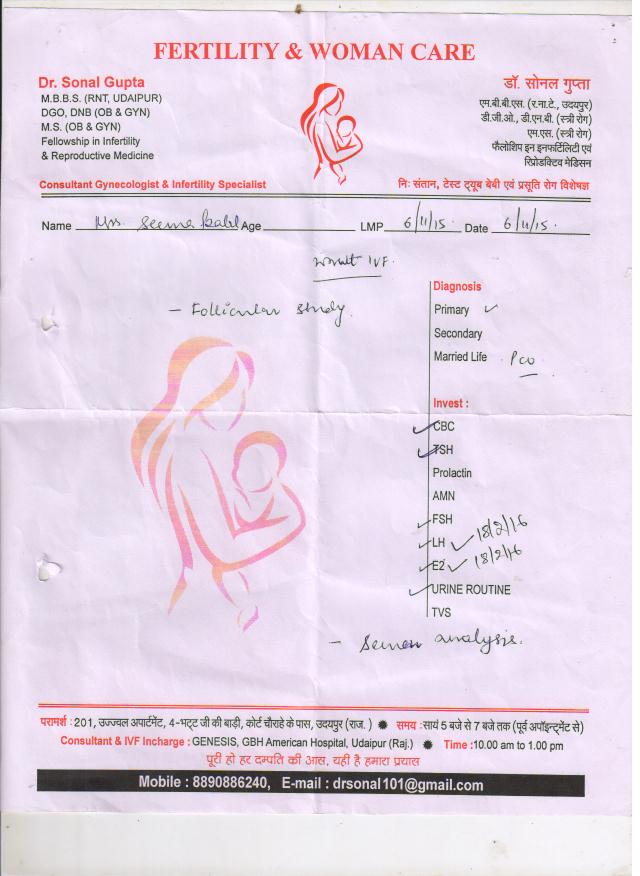 FERTILITY & WOMAN CARE
Dr. Sonal Gupta
M.B.B.S. (RNT, UDAIPUR)
DGO, DNB (OB & GYN)
M.S. (OB & GYN)
Fellowship in Infertility
& Reproductive Medicine
Consultant Gynecologist & Infertility Specialist
डॉ. सोनल गुप्ता
एम.बी.बी.एस. (र.ना.टे., उदयपुर)
डी.जी.ओ., डी.एन.बी. (स्त्री रोग)
एम.एस. (स्त्री रोग)
फैलोशिप इन इनफर्टिलिटी एवं
रिप्रोडक्टिव मेडिसन
निः संतान, टेस्ट ट्यूब बेबी एवं प्रसूति रोग विशेषज्ञ
Name Mrs. Seema Age LMP 6/11/15. Date 6/11/15.
IVF.
- Follicular study.
Diagnosis
Primary ✓
Secondary
Married Life . PCO
Invest :
✓ CBC
✓ TSH
Prolactin
AMN
✓ FSH
✓ LH ✓ 18/2/16
✓ E2 ✓ 18/2/16
✓ URINE ROUTINE
TVS
- Semen analysis.
परामर्श : 201, उज्ज्वल अपार्टमेंट, 4-भट्ट जी की बाड़ी, कोर्ट चौराहे के पास, उदयपुर (राज.) ✹ समय : सायं 5 बजे से 7 बजे तक (पूर्व अपॉइन्ट्मेंट से)
Consultant & IVF Incharge : GENESIS, GBH American Hospital, Udaipur (Raj.) ✹ Time :10.00 am to 1.00 pm
पूरी हो हर दम्पति की आस, यही है हमारा प्रयास
Mobile : 8890886240, E-mail : drsonal101@gmail.com